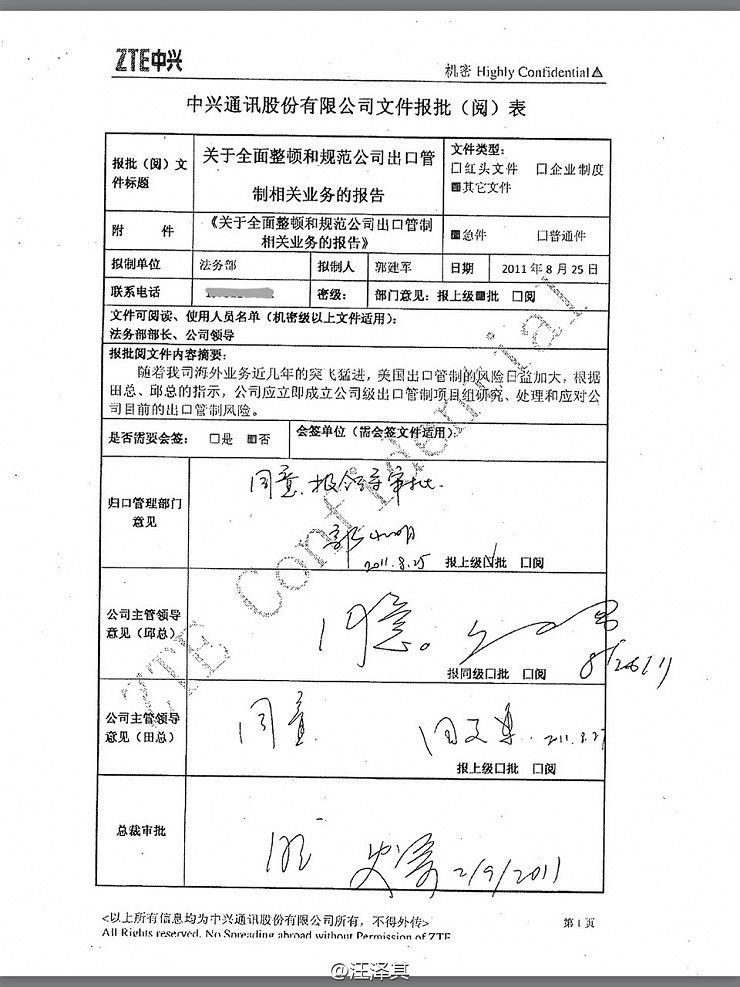 ZTE中兴
机密 Highly Confidential△
中兴通讯股份有限公司文件报批（阅）表
报批（阅）文件标题
关于全面整顿和规范公司出口管
制相关业务的报告
文件类型：
□红头文件 □企业制度
■其它文件
附 件
《关于全面整顿和规范公司出口管制
相关业务的报告》
■急件 □普通件
拟制单位 法务部 拟制人 郭建军 日期 2011 年 8 月 25 日
联系电话 密级： 部门意见：报上级■批 □阅
文件可阅读、使用人员名单（机密级以上文件适用）：
法务部部长、公司领导
报批阅文件内容摘要：
随着我司海外业务近几年的突飞猛进，美国出口管制的风险日益加大，根据
田总、邱总的指示，公司应立即成立公司级出口管制项目组研究、处理和应对公
司目前的出口管制风险。
是否需要会签： □是 ■否 会签单位（需会签文件适用）：
归口管理部门
意见
同意，报领导审批.
郭小明
2011.8.25 报上级☑批 □阅
公司主管领导
意见（邱总）
同意。
8/26/11
报同级□批 □阅
公司主管领导
意见（田总）
同意. 田文果. 2011.8.27
报上级□批 □阅
总裁审批
史立荣 2/9/2011
<以上所有信息均为中兴通讯股份有限公司所有，不得外传>
第 1 页
All Rights reserved. No Spreading abroad without Permission of ZTE
ZTE Confidential
@汪泽其